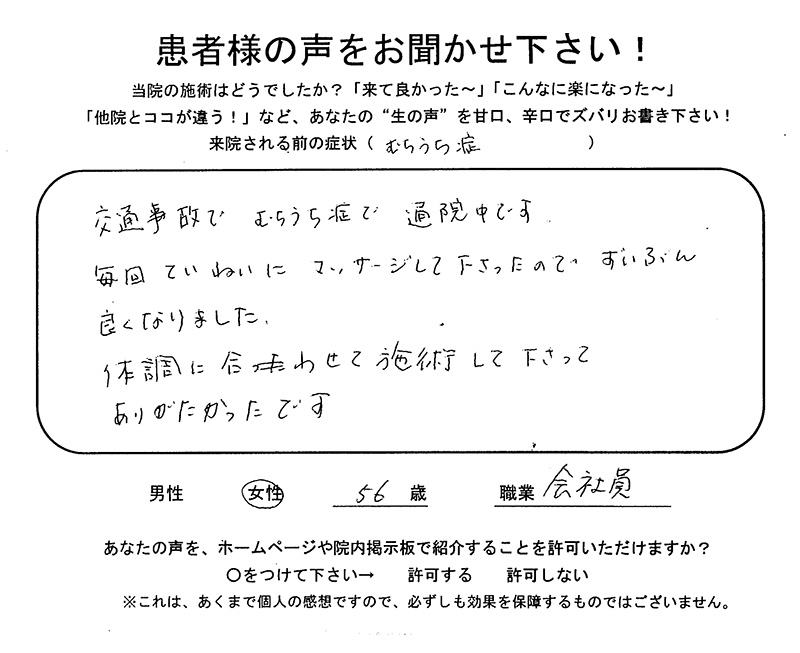 患者様の声をお聞かせ下さい！
当院の施術はどうでしたか？「来て良かった～」「こんなに楽になった～」
「他院とココが違う！」など、あなたの“生の声”を甘口、辛口でズバリお書き下さい！
来院される前の症状（ むちうち症 ）
交通事故で むちうち症で 通院中です
毎回 ていねいに マッサージして下さったので ずいぶん
良くなりました.
体調に合わせて施術して下さって
ありがたかったです
男性 女性 56 歳 職業 会社員
あなたの声を、ホームページや院内掲示板で紹介することを許可いただけますか？
〇をつけて下さい→ 許可する 許可しない
※これは、あくまで個人の感想ですので、必ずしも効果を保障するものではございません。